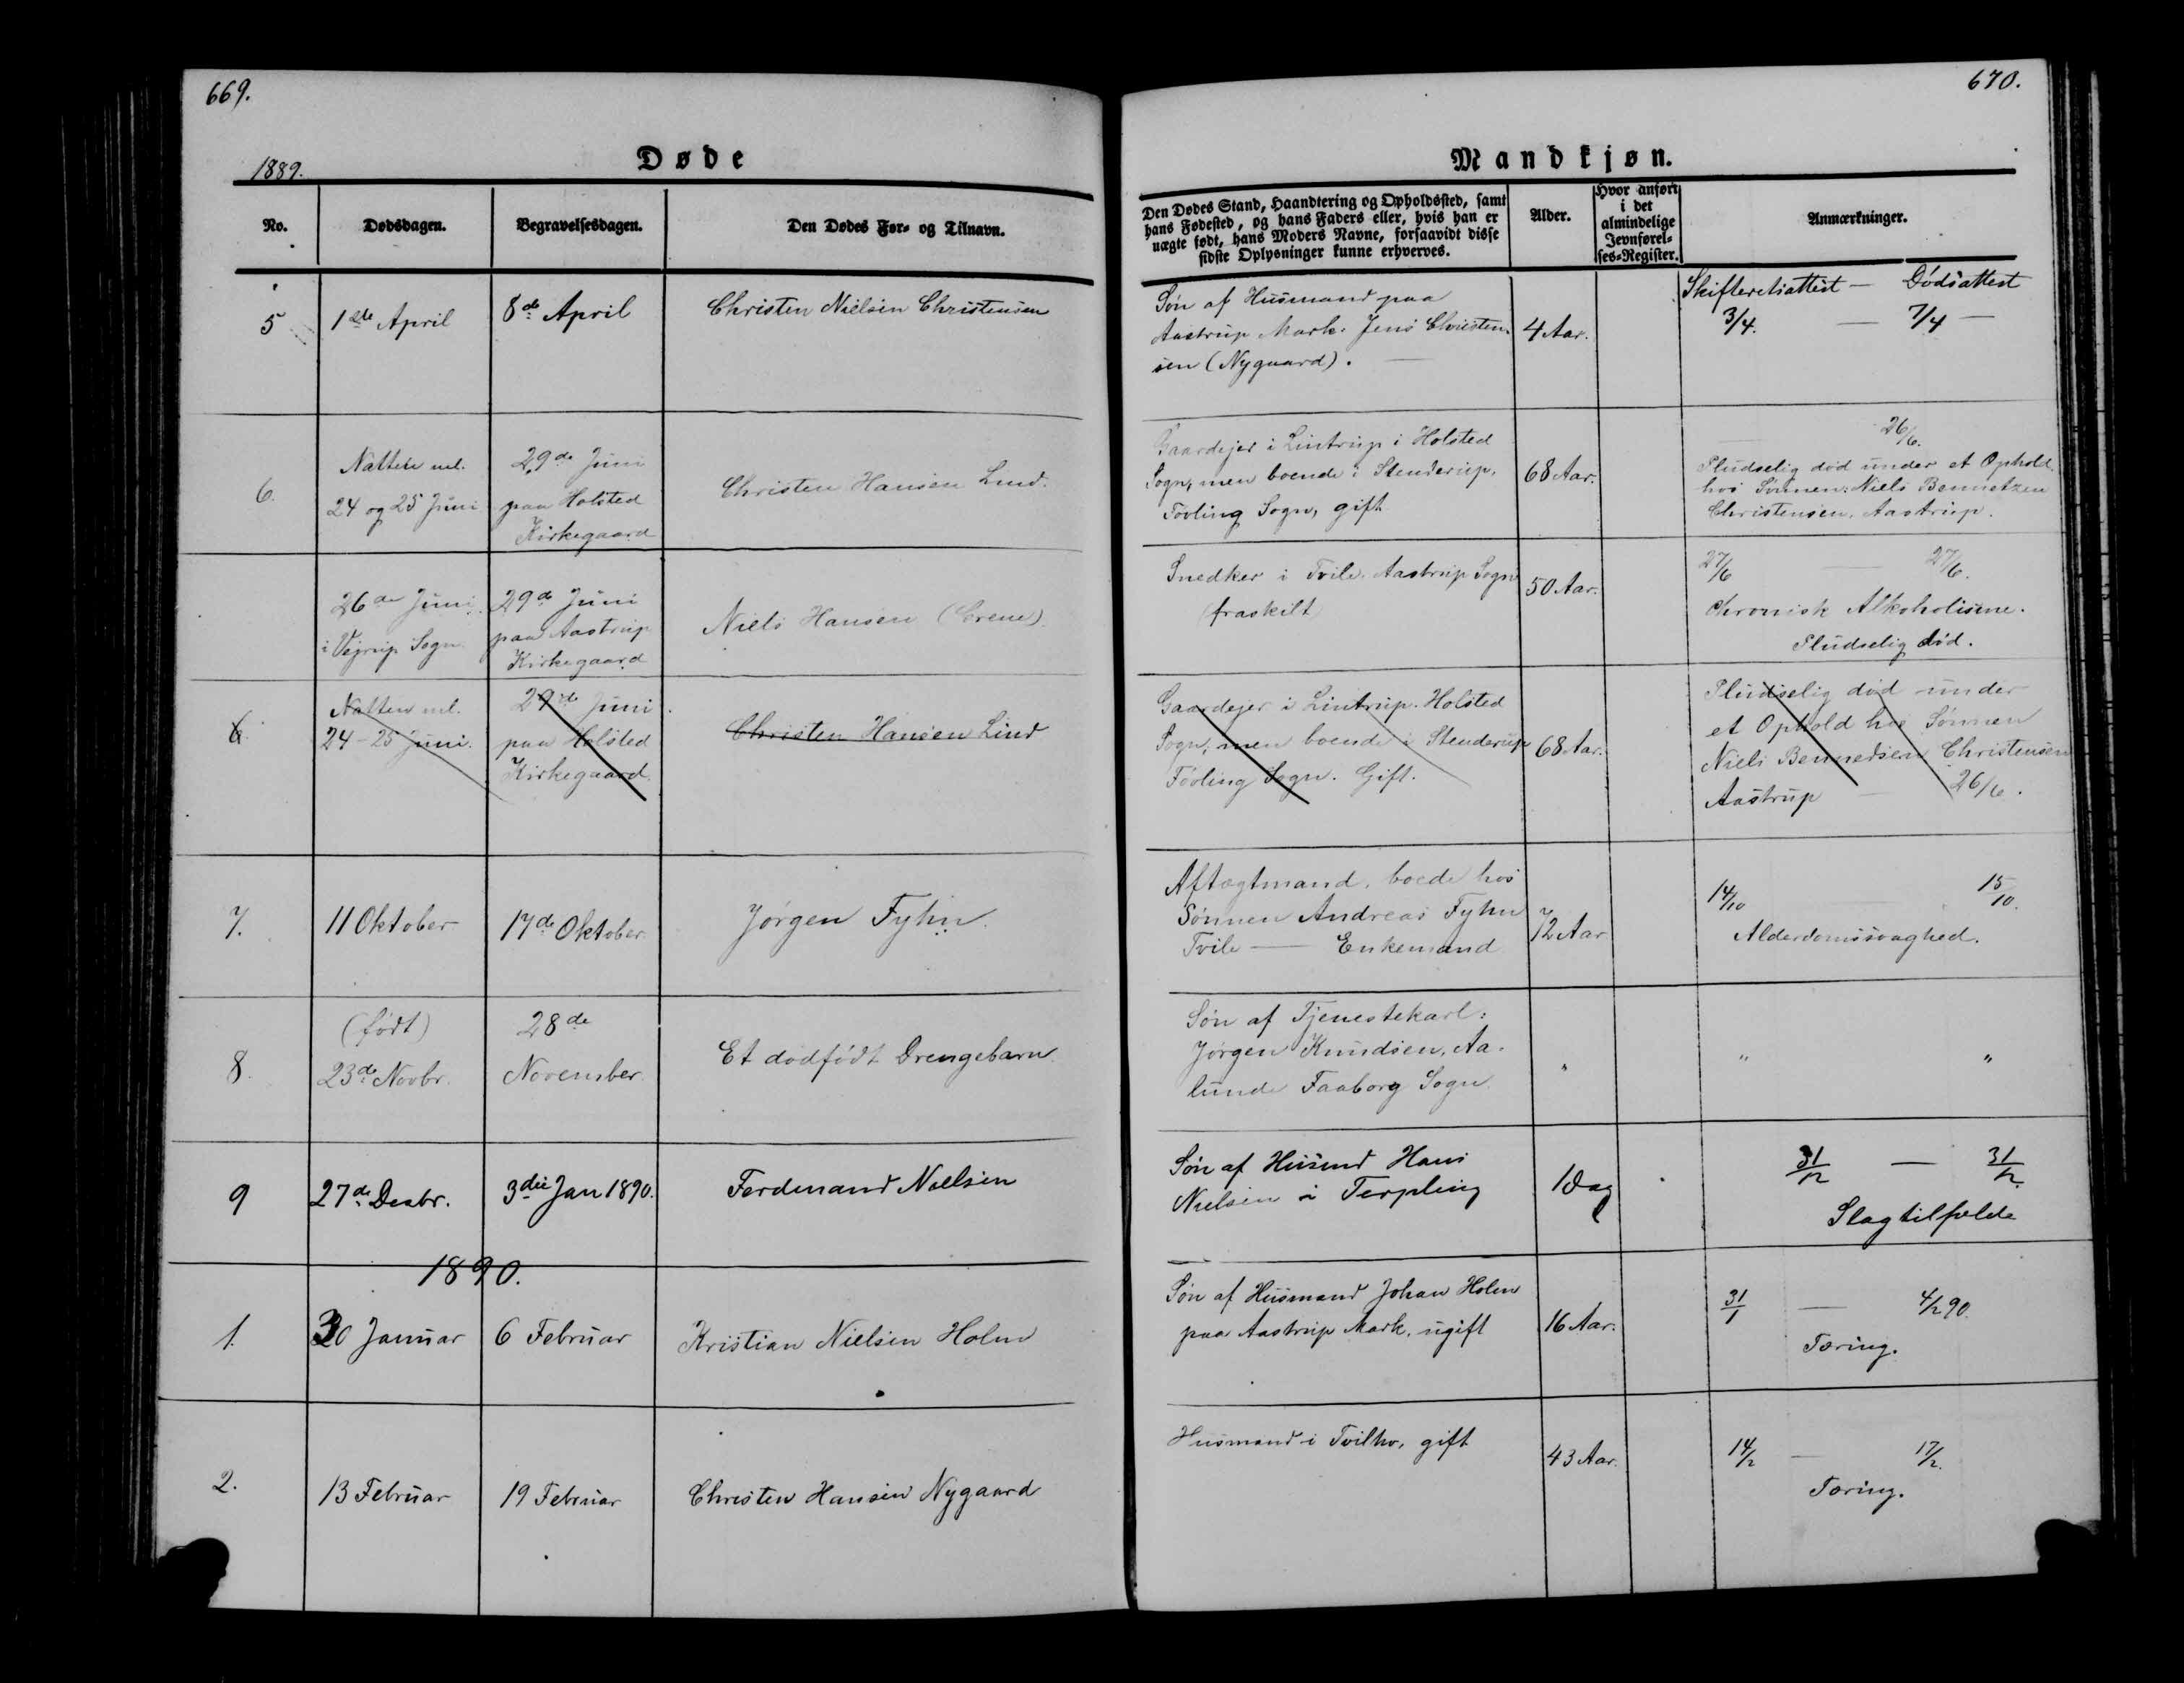 669.
670.
1889.
Døde
Mandkjøn.
No.
Dødsdagen.
Begravelsesdagen.
Den Dødes For- og Tilnavn.
Den Dødes Stand, Haandtering og Opholdssted, samt
hans Fødested, og hans Faders eller, hvis han er
uægte født, hans Moders Navne, forsaavidt disse
sidste Oplysninger kunne erhverves.
Alder.
Hvor anført
i det
almindelige
Jevnførel-
ses-Register.
Anmærkninger.
Skifteretsattest — Dødsattest
5
1ste April
8de April
Christen Nielsen Christensen
Søn af Husmand paa
Aastrup Mark. Jens Christen-
sen (Nygaard). —
4 Aar.
3/4. — 7/4 —
6.
Natten ml.
24 og 25 Juni
29de Juni
paa Holsted
Kirkegaard
Christen Hansen Lind.
Gaardejer i Lintrup i Holsted
Sogn, men boende i Stenderup,
Føvling Sogn, gift
68 Aar.
26/6.
Pludselig død under et Ophold
hos Sønnen: Niels Bennetzen
Christensen, Aastrup.
26de Juni
i Vejrup Sogn
29de Juni
paa Aastrup
Kirkegaard
Niels Hansen (Grene)
Snedker i Tvile, Aastrup Sogn
fraskilt
50 Aar.
27/6 — 27/6.
Chronisk Alkoholisme.
Pludselig død.
6
Natten ml.
24-25 Juni.
29de Juni
paa Holsted
Kirkegaard
Christen Hansen Lind
Gaardejer i Lintrup. Holsted
Sogn, men boende i Stenderup
Føvling Sogn. Gift.
68 Aar.
Pludselig død under
et Ophold hos Sønnen
Niels Bennedsen Christensen
Aastrup — 26/6.
7.
11 Oktober
17de Oktober
Jørgen Fyhn.
Aftægtmand, boede hos
Sønnen Andreas Fyhn
Tvile — Enkemand
72 Aar
14/10 15/10.
Alderdomssvaghed.
8.
(født)
23de Novbr.
28de
November
Et dødfødt Drengebarn
Søn af Tjenestekarl:
Jørgen Knudsen, Aa-
lunde Faaborg Sogn.
"
"
"
9
27de Decbr.
3die Jan 1890.
Ferdinand Nielsen
Søn af Husmd Hans
Nielsen i Terpling
1 Dag
31/12 — 31/12.
Slagtilfælde
1890.
1.
30 Januar
6 Februar
Kristian Nielsen Holm
Søn af Husmand Johan Holm
paa Aastrup Mark, ugift
16 Aar.
31/1 — 4/2 90.
Tæring.
2.
13 Februar
19 Februar
Christen Hansen Nygaard
Husmand i Tvilho, gift
43 Aar.
14/2 — 17/2.
Tæring.